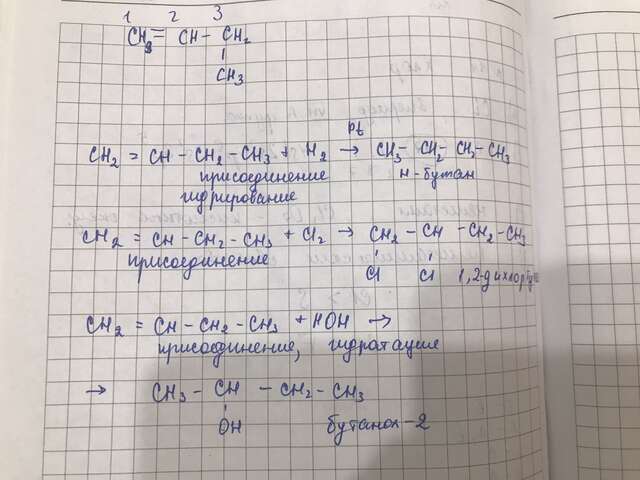 1 2 3
CH3 = CH - CH2
CH3
CH2 = CH - CH2 - CH3 + H2 → CH3 - CH2 - CH2 - CH3
Pt
присоединение н-бутан
гидрирование
CH2 = CH - CH2 - CH3 + Cl2 → CH2 - CH - CH2 - CH3
присоединение Cl Cl 1,2-дихлорбу
CH2 = CH - CH2 - CH3 + HOH →
присоединение, гидратация
→ CH3 - CH - CH2 - CH3
OH бутанол-2